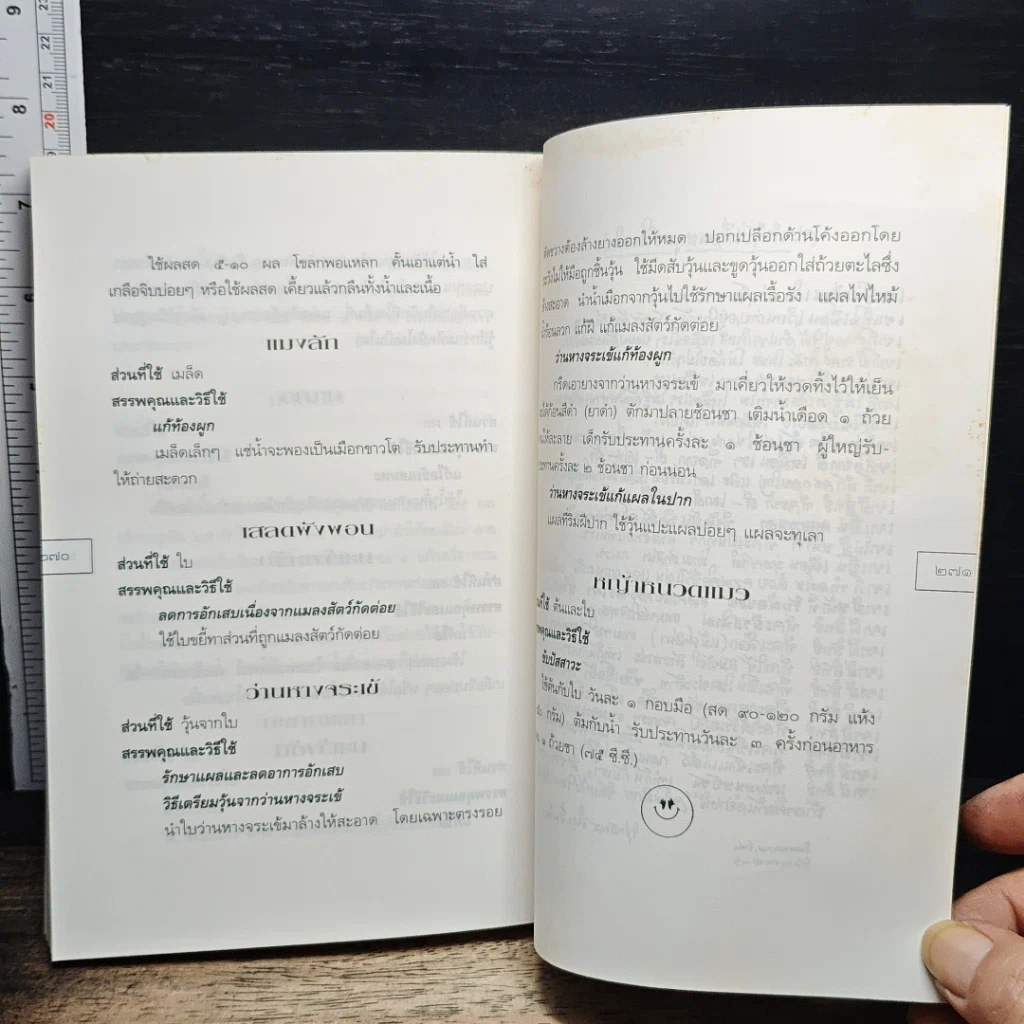 ใช้ผลสด ๕-๑๐ ผล โขลกพอแหลก คั้นเอาแต่น้ำ ใส่
เกลือจิบบ่อยๆ หรือใช้ผลสด เคี้ยวแล้วกลืนทั้งน้ำและเนื้อ
แมงลัก
ส่วนที่ใช้ เมล็ด
สรรพคุณและวิธีใช้
แก้ท้องผูก
เมล็ดเล็กๆ แช่น้ำจะพองเป็นเมือกขาวโต รับประทานทำ
ให้ถ่ายสะดวก
เสลดพังพอน
ส่วนที่ใช้ ใบ
สรรพคุณและวิธีใช้
ลดการอักเสบเนื่องจากแมลงสัตว์กัดต่อย
ใช้ใบขยี้ทาส่วนที่ถูกแมลงสัตว์กัดต่อย
ว่านหางจระเข้
ส่วนที่ใช้ วุ้นจากใบ
สรรพคุณและวิธีใช้
รักษาแผลและลดอาการอักเสบ
วิธีเตรียมวุ้นจากว่านหางจระเข้
นำใบว่านหางจระเข้มาล้างให้สะอาด โดยเฉพาะตรงรอย
๒๗๐
ตัดขวางต้องล้างยางออกให้หมด ปอกเปลือกด้านโค้งออกโดย
ระวังไม่ให้มือถูกชิ้นวุ้น ใช้มีดสับวุ้นและขูดวุ้นออกใส่ถ้วยตะไลซึ่ง
ล้างสะอาด นำน้ำเมือกจากวุ้นไปใช้รักษาแผลเรื้อรัง แผลไฟไหม้
น้ำร้อนลวก แก้ฝี แก้แมลงสัตว์กัดต่อย
ว่านหางจระเข้แก้ท้องผูก
กรีดเอายางจากว่านหางจระเข้ มาเคี่ยวให้งวดทิ้งไว้ให้เย็น
ได้ก้อนสีดำ (ยาดำ) ตักมาปลายช้อนชา เติมน้ำเดือด ๑ ถ้วย
คนให้ละลาย เด็กรับประทานครั้งละ ๑ ช้อนชา ผู้ใหญ่รับ-
ประทานครั้งละ ๒ ช้อนชา ก่อนนอน
ว่านหางจระเข้แก้แผลในปาก
แผลที่ริมฝีปาก ใช้วุ้นแปะแผลบ่อยๆ แผลจะทุเลา
หญ้าหนวดแมว
ส่วนที่ใช้ ต้นและใบ
สรรพคุณและวิธีใช้
ขับปัสสาวะ
ใช้ต้นกับใบ วันละ ๑ กอบมือ (สด ๙๐-๑๒๐ กรัม แห้ง
กรัม) ต้มกับน้ำ รับประทานวันละ ๓ ครั้งก่อนอาหาร
๑ ถ้วยชา (๗๕ ซี.ซี.)
๒๗๑